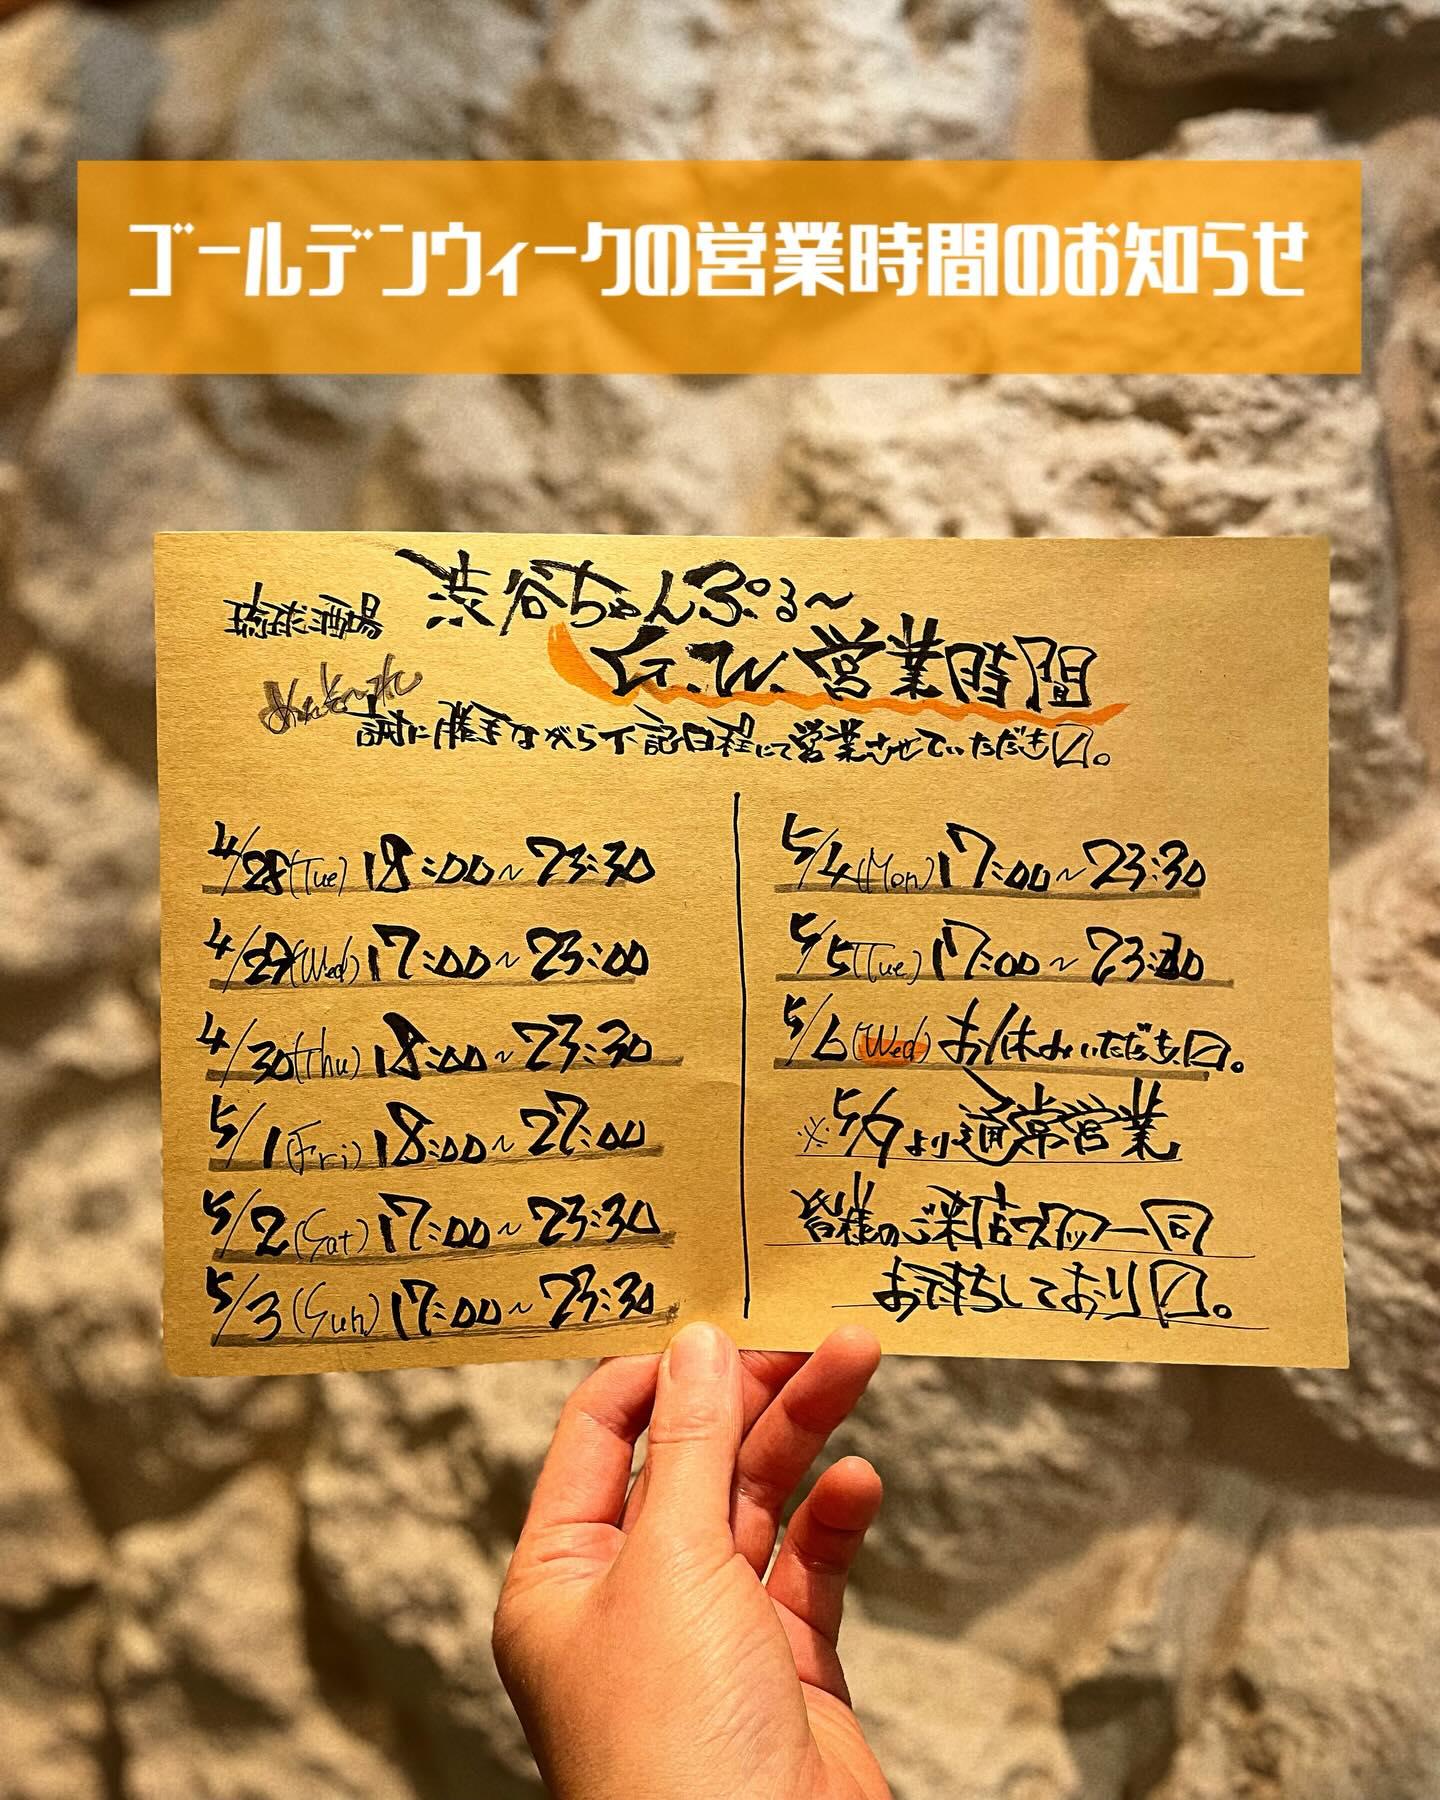 ゴールデンウィークの営業時間のお知らせ
琉球酒場 渋谷ちゃんぷる〜
めんそ〜れ
G.W.営業時間
誠に勝手ながら下記日程にて営業させていただき〼。
4/28(Tue) 18:00~23:30
4/29(Wed) 17:00~23:00
4/30(Thu) 18:00~23:30
5/1(Fri) 18:00~27:00
5/2(Sat) 17:00~23:30
5/3(Sun) 17:00~23:30
5/4(Mon) 17:00~23:30
5/5(Tue) 17:00~
5/6(Wed) お休みいただき〼。
※5/7より通常営業
皆様のご来店スタッフ一同
お待ちしており〼。